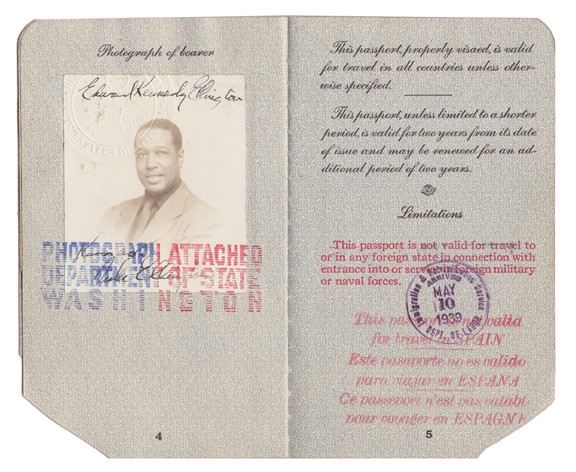 Photograph of bearer
Edward Kennedy Ellington
STATES OF
PHOTOGRAPH ATTACHED
Duke Ellington
DEPARTMENT OF STATE
WASHINGTON
4
This passport, properly visaed, is valid
for travel in all countries unless other-
wise specified.
This passport, unless limited to a shorter
period, is valid for two years from its date
of issue and may be renewed for an ad-
ditional period of two years.
Limitations
This passport is not valid for travel to
or in any foreign state in connection with
entrance into or service in foreign military
or naval forces.
Immigration & Service
ARRIVED
MAY
10
1939
DEPT. OF LABOR
This passport is not valid
for travel in SPAIN
Este pasaporte no es valido
para viajar en ESPANA
Ce passeport n'est pas valable
pour voyager en ESPAGNE
5